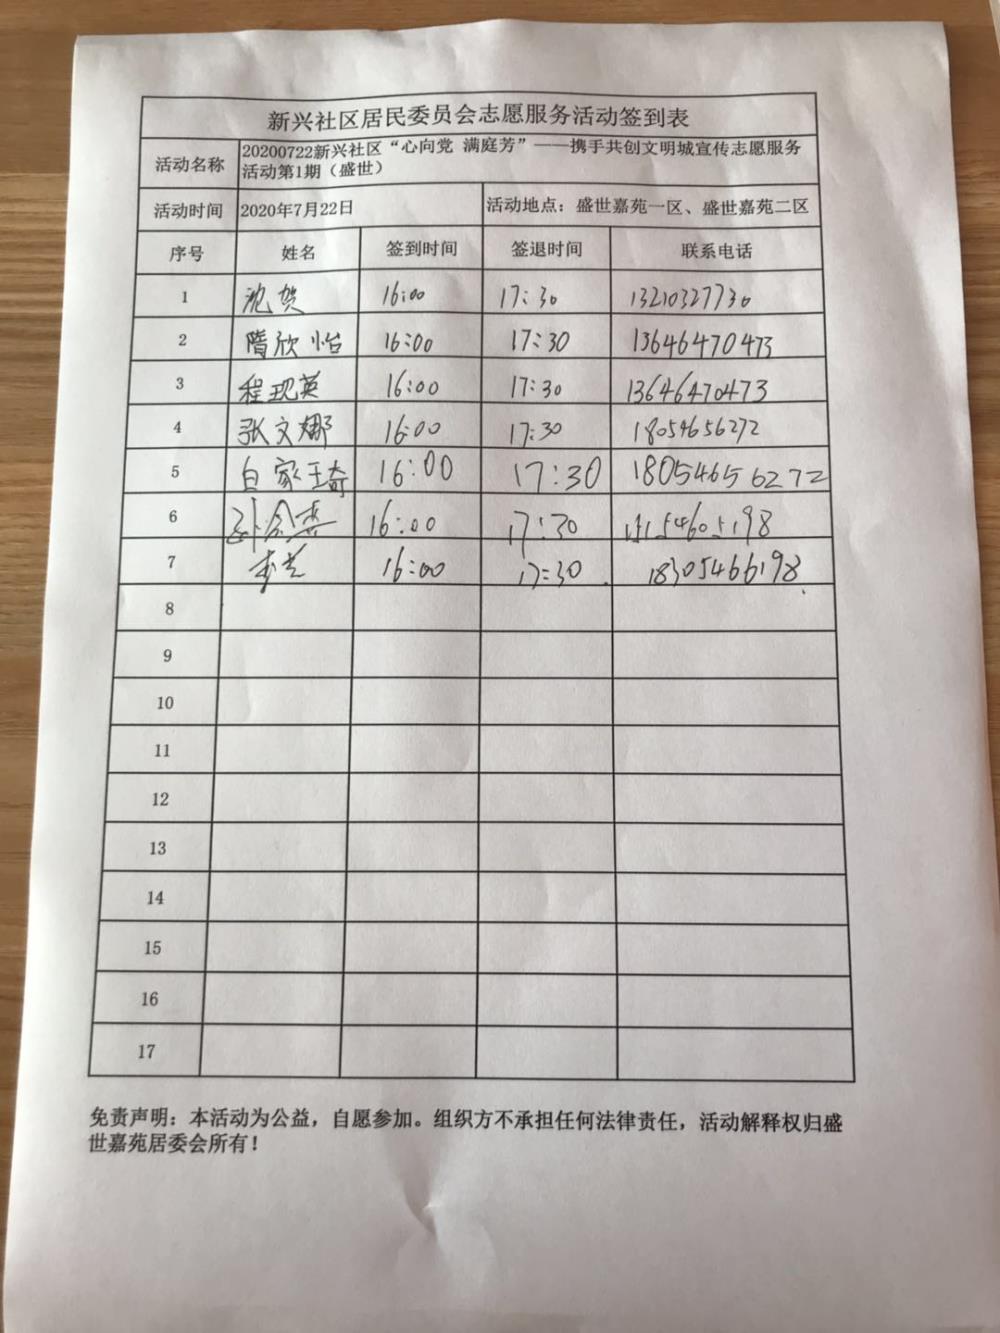 新兴社区居民委员会志愿服务活动签到表
活动名称 20200722新兴社区“心向党 满庭芳”——携手共创文明城宣传志愿服务
活动第1期（盛世）
活动时间 2020年7月22日 活动地点：盛世嘉苑一区、盛世嘉苑二区
序号 姓名 签到时间 签退时间 联系电话
1 沈贺 16:00 17:30 13210327730
2 隋欣怡 16:00 17:30 13646470473
3 程现英 16:00 17:30 13646470473
4 张文娜 16:00 17:30 18054656272
5 白家琦 16:00 17:30 18054656272
6 16:00 17:30
7 16:00 17:30 18305466198
8
9
10
11
12
13
14
15
16
17
免责声明：本活动为公益，自愿参加。组织方不承担任何法律责任，活动解释权归盛
世嘉苑居委会所有！